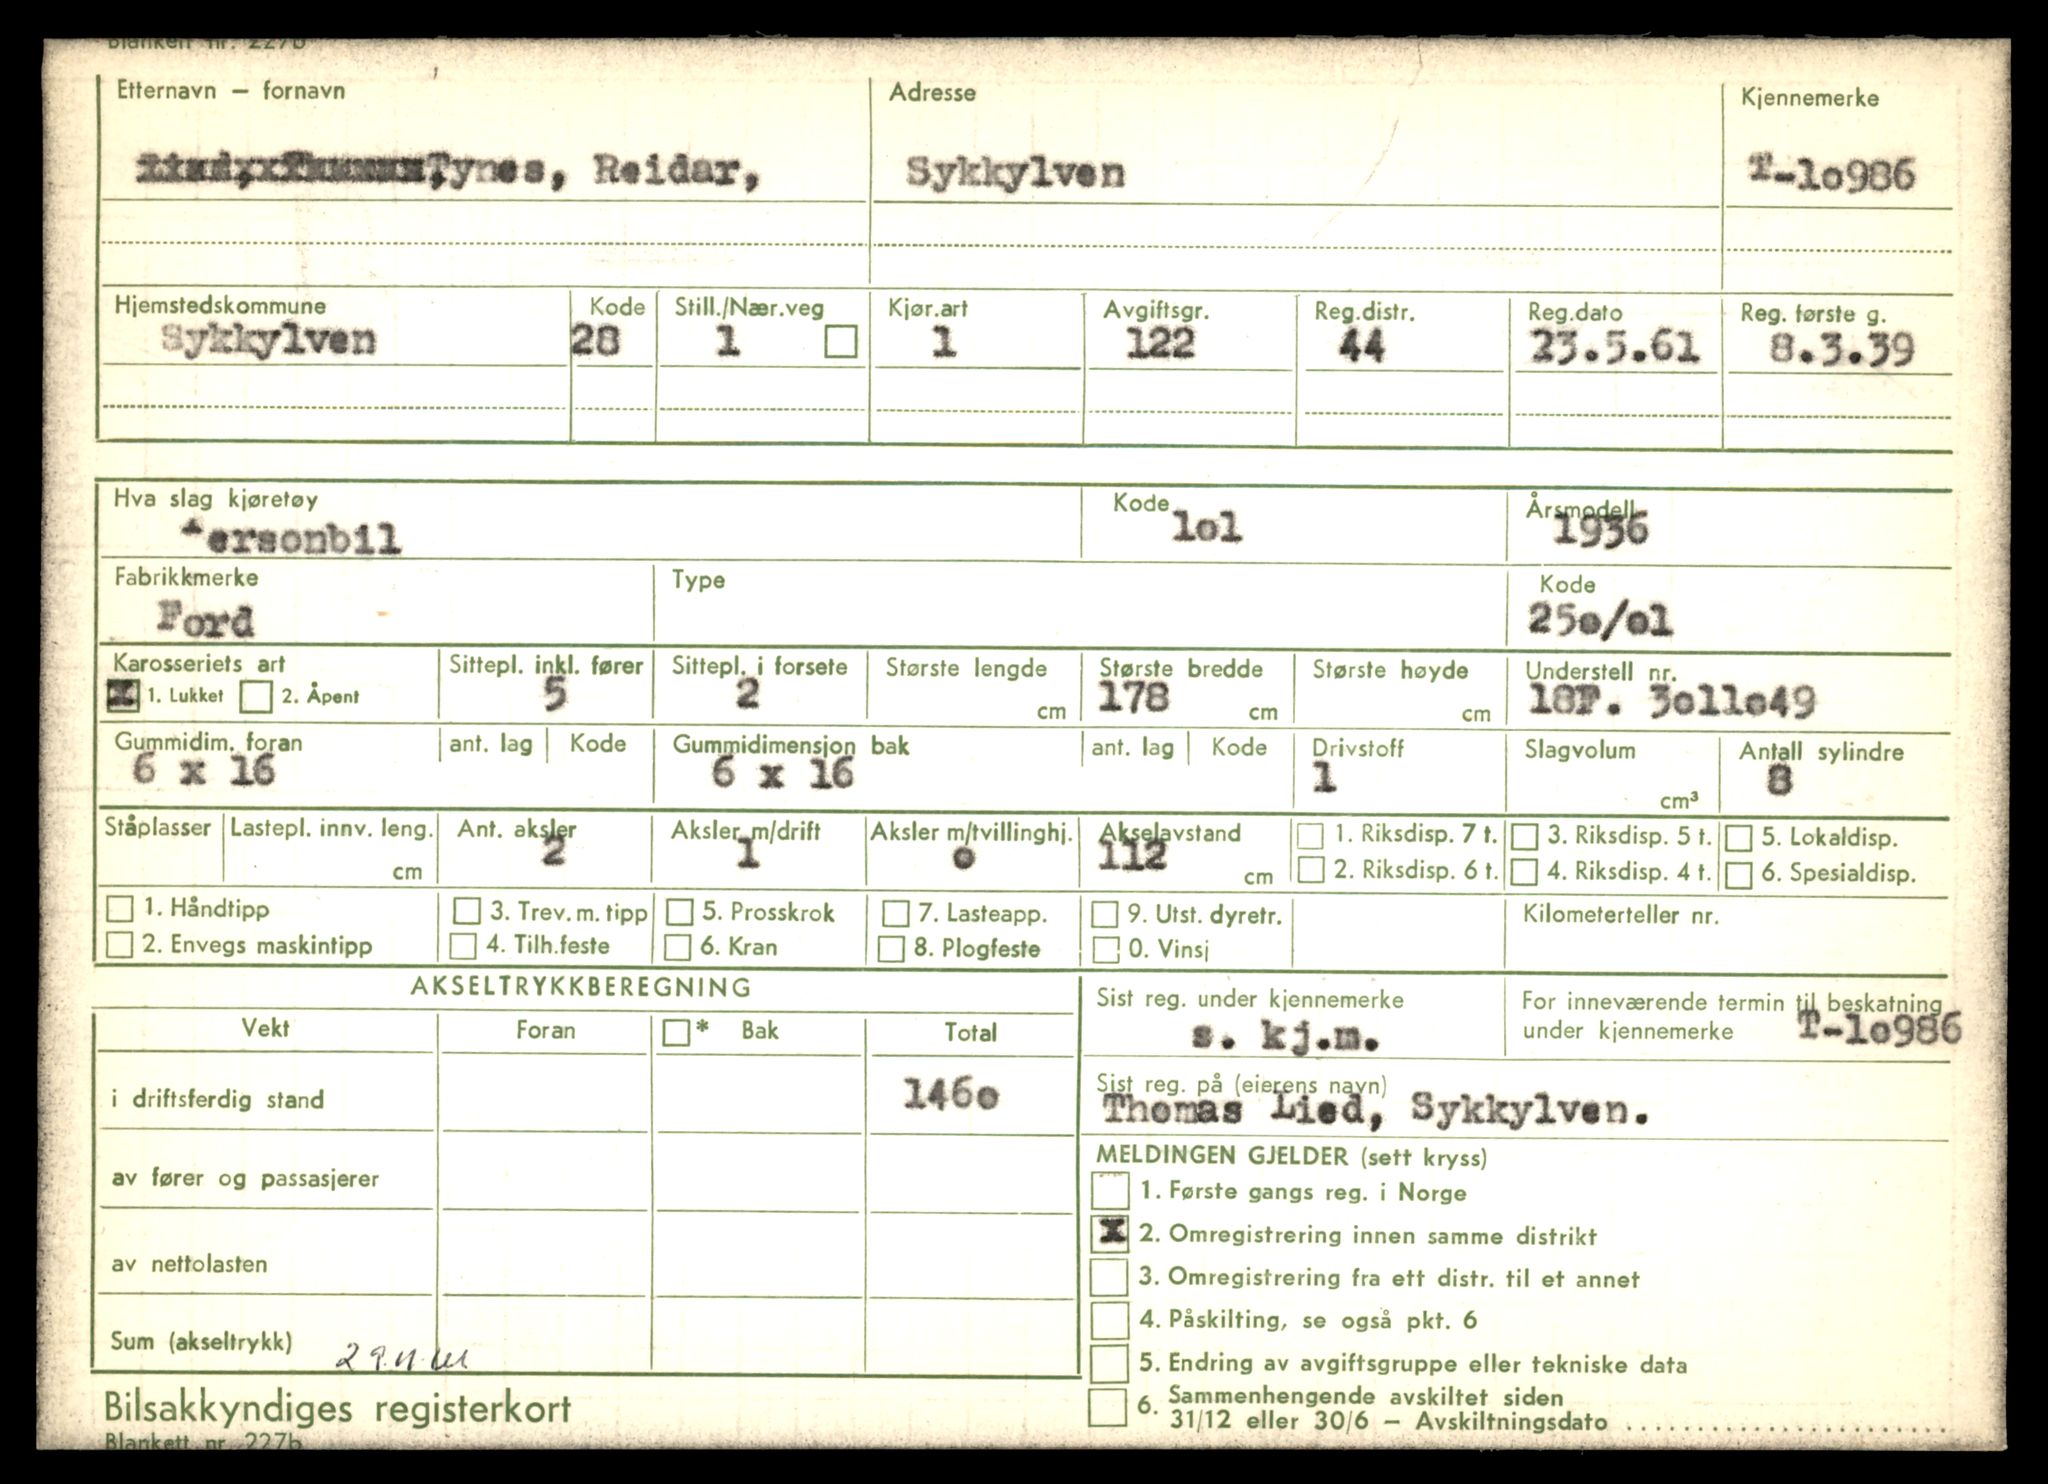 Blankett nr. 227b
Etternavn – fornavn Adresse Kjennemerke
Tynes, Reidar, Sykkylven T-lo986
Hjemstedskommune Kode Still./Nær.veg Kjør.art Avgiftsgr. Reg.distr. Reg.dato Reg. første g.
Sykkylven 28 1 1 122 44 23.5.61 8.3.39
Hva slag kjøretøy Kode Årsmodell
ersonbil lol 1936
Fabrikkmerke Type Kode
Ford 25o/ol
Karosseriets art Sittepl. inkl. fører Sittepl. i forsete Største lengde Største bredde Største høyde Understell nr.
X 1. Lukket 2. Åpent 5 2 cm 178 cm cm 18F. 3ollo49
Gummidim. foran ant. lag Kode Gummidimensjon bak ant. lag Kode Drivstoff Slagvolum Antall sylindre
6 x 16 6 x 16 1 cm³ 8
Ståplasser Lastepl. innv. leng. Ant. aksler Aksler m/drift Aksler m/tvillinghj. Akselavstand 1. Riksdisp. 7 t. 3. Riksdisp. 5 t. 5. Lokaldisp.
cm 2 1 o 112 cm 2. Riksdisp. 6 t. 4. Riksdisp. 4 t. 6. Spesialdisp.
1. Håndtipp 3. Trev. m. tipp 5. Prosskrok 7. Lasteapp. 9. Utst. dyretr. Kilometerteller nr.
2. Envegs maskintipp 4. Tilh.feste 6. Kran 8. Plogfeste 0. Vinsj
AKSELTRYKKBEREGNING
Vekt Foran * Bak Total
i driftsferdig stand 146o
av fører og passasjerer
av nettolasten
Sum (akseltrykk)
Sist reg. under kjennemerke For inneværende termin til beskatning
s. kj.m. under kjennemerke T-lo986
Sist reg. på (eierens navn)
Thomas Lied, Sykkylven.
MELDINGEN GJELDER (sett kryss)
1. Første gangs reg. i Norge
X 2. Omregistrering innen samme distrikt
3. Omregistrering fra ett distr. til et annet
4. Påskilting, se også pkt. 6
5. Endring av avgiftsgruppe eller tekniske data
6. Sammenhengende avskiltet siden
31/12 eller 30/6 – Avskiltningsdato
Bilsakkyndiges registerkort
Blankett nr. 227b